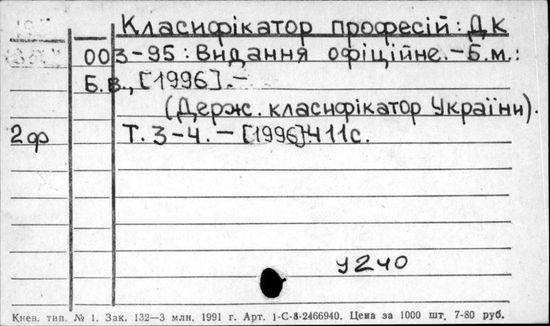 Класифікатор професій: ДК
003-95: Видання офіційне.-Б.м.:
Б.в., [1996].-
(Держ. класифікатор України).
2ф Т. 3-4. - [1996].411с.
У240
Киев. тип. № 1. Зак. 132—3 млн. 1991 г. Арт. 1-С-8-2466940. Цена за 1000 шт. 7-80 руб.